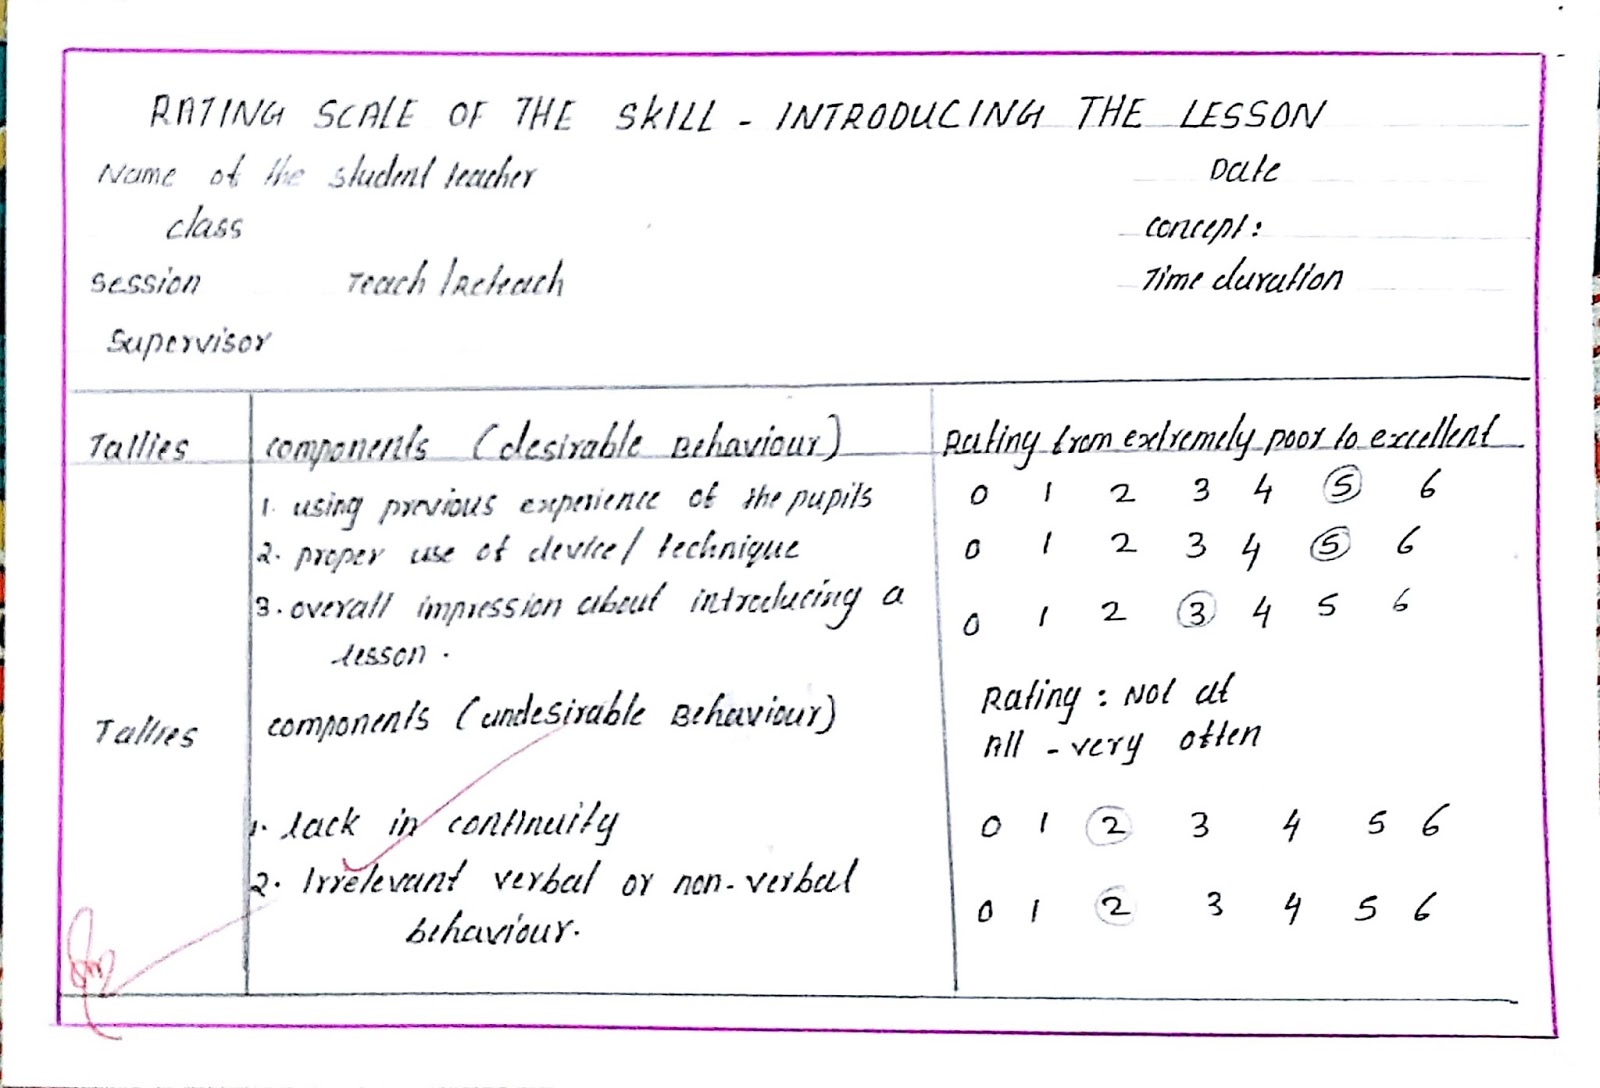 RATING SCALE OF THE SKILL - INTRODUCING THE LESSON
Name of the student teacher Date
class concept:
session Teach / Reteach Time duration
Supervisor
Tallies components (desirable Behaviour) Rating from extremely poor to excellent
1. using previous experience of the pupils 0 1 2 3 4 5 6
2. proper use of device / technique 0 1 2 3 4 5 6
3. overall impression about introducing a 0 1 2 3 4 5 6
lesson.
Tallies components (undesirable Behaviour) Rating : Not at
All - very often
1. lack in continuity 0 1 2 3 4 5 6
2. Irrelevant verbal or non-verbal 0 1 2 3 4 5 6
behaviour.